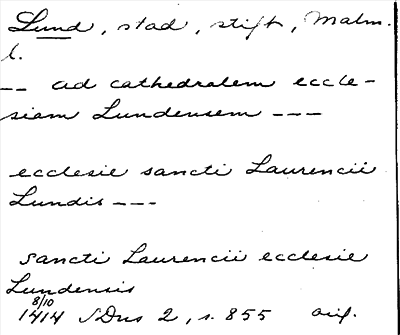 Lund, stad, stift, Malm.
l.
-- ad cathedralem eccle-
siam Lundensem ---
ecclesie sancti Laurencii
Lundis ---
sancti Laurencii ecclesie
Lundensis
8/10
1414 SDns 2, s. 855 avs.